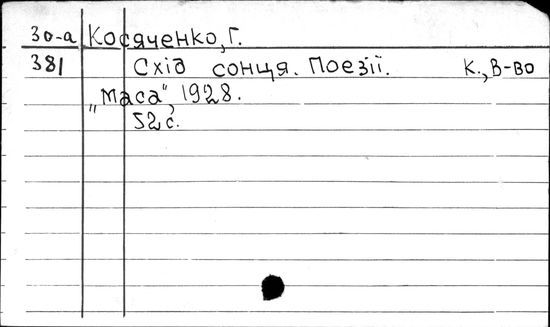 3о-а Косяченко, Г.
381 Схід сонця. Поезії. К., В-во
„Маса", 1928.
52 с.